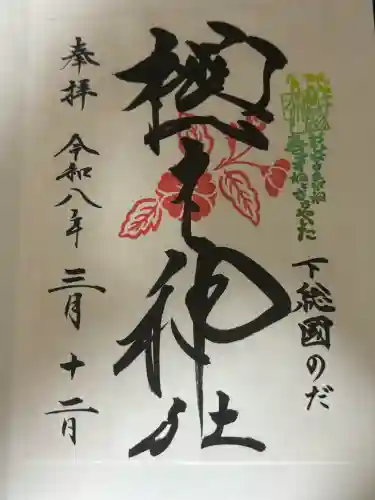 下総國のだ
櫻木神社
奉拝 令和八年 三月 十二日